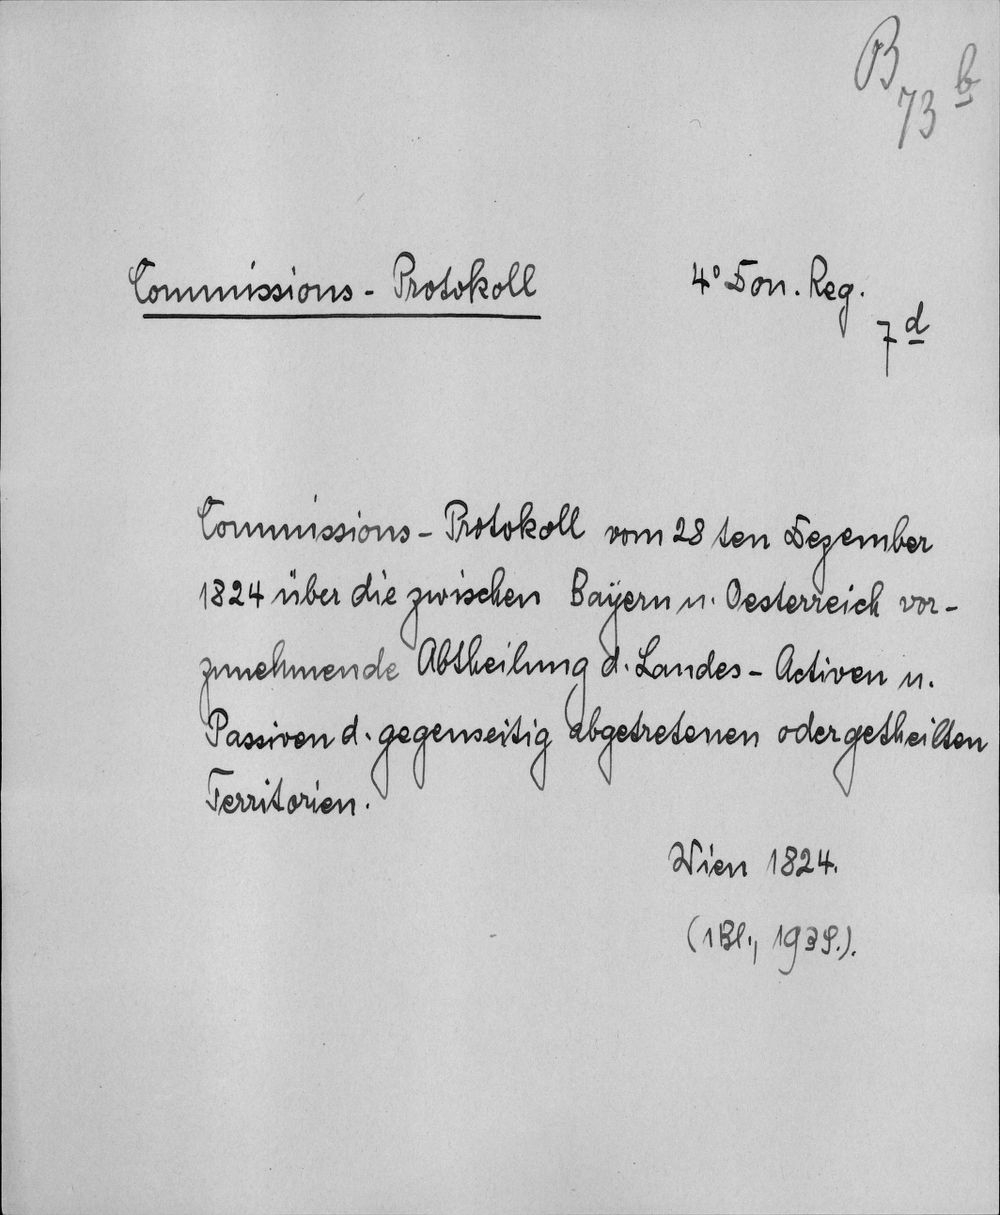 B
73 b
Commissions - Protokoll
4° Don. Reg.
7 d
Commissions - Protokoll vom 28 ten Dezember
1824 über die zwischen Bayern u. Oesterreich vor-
zunehmende Abtheilung d. Landes - Activen u.
Passiven d. gegenseitig abgetretenen oder getheilten
Territorien.
Wien 1824.
(1 Bl., 193 S.).